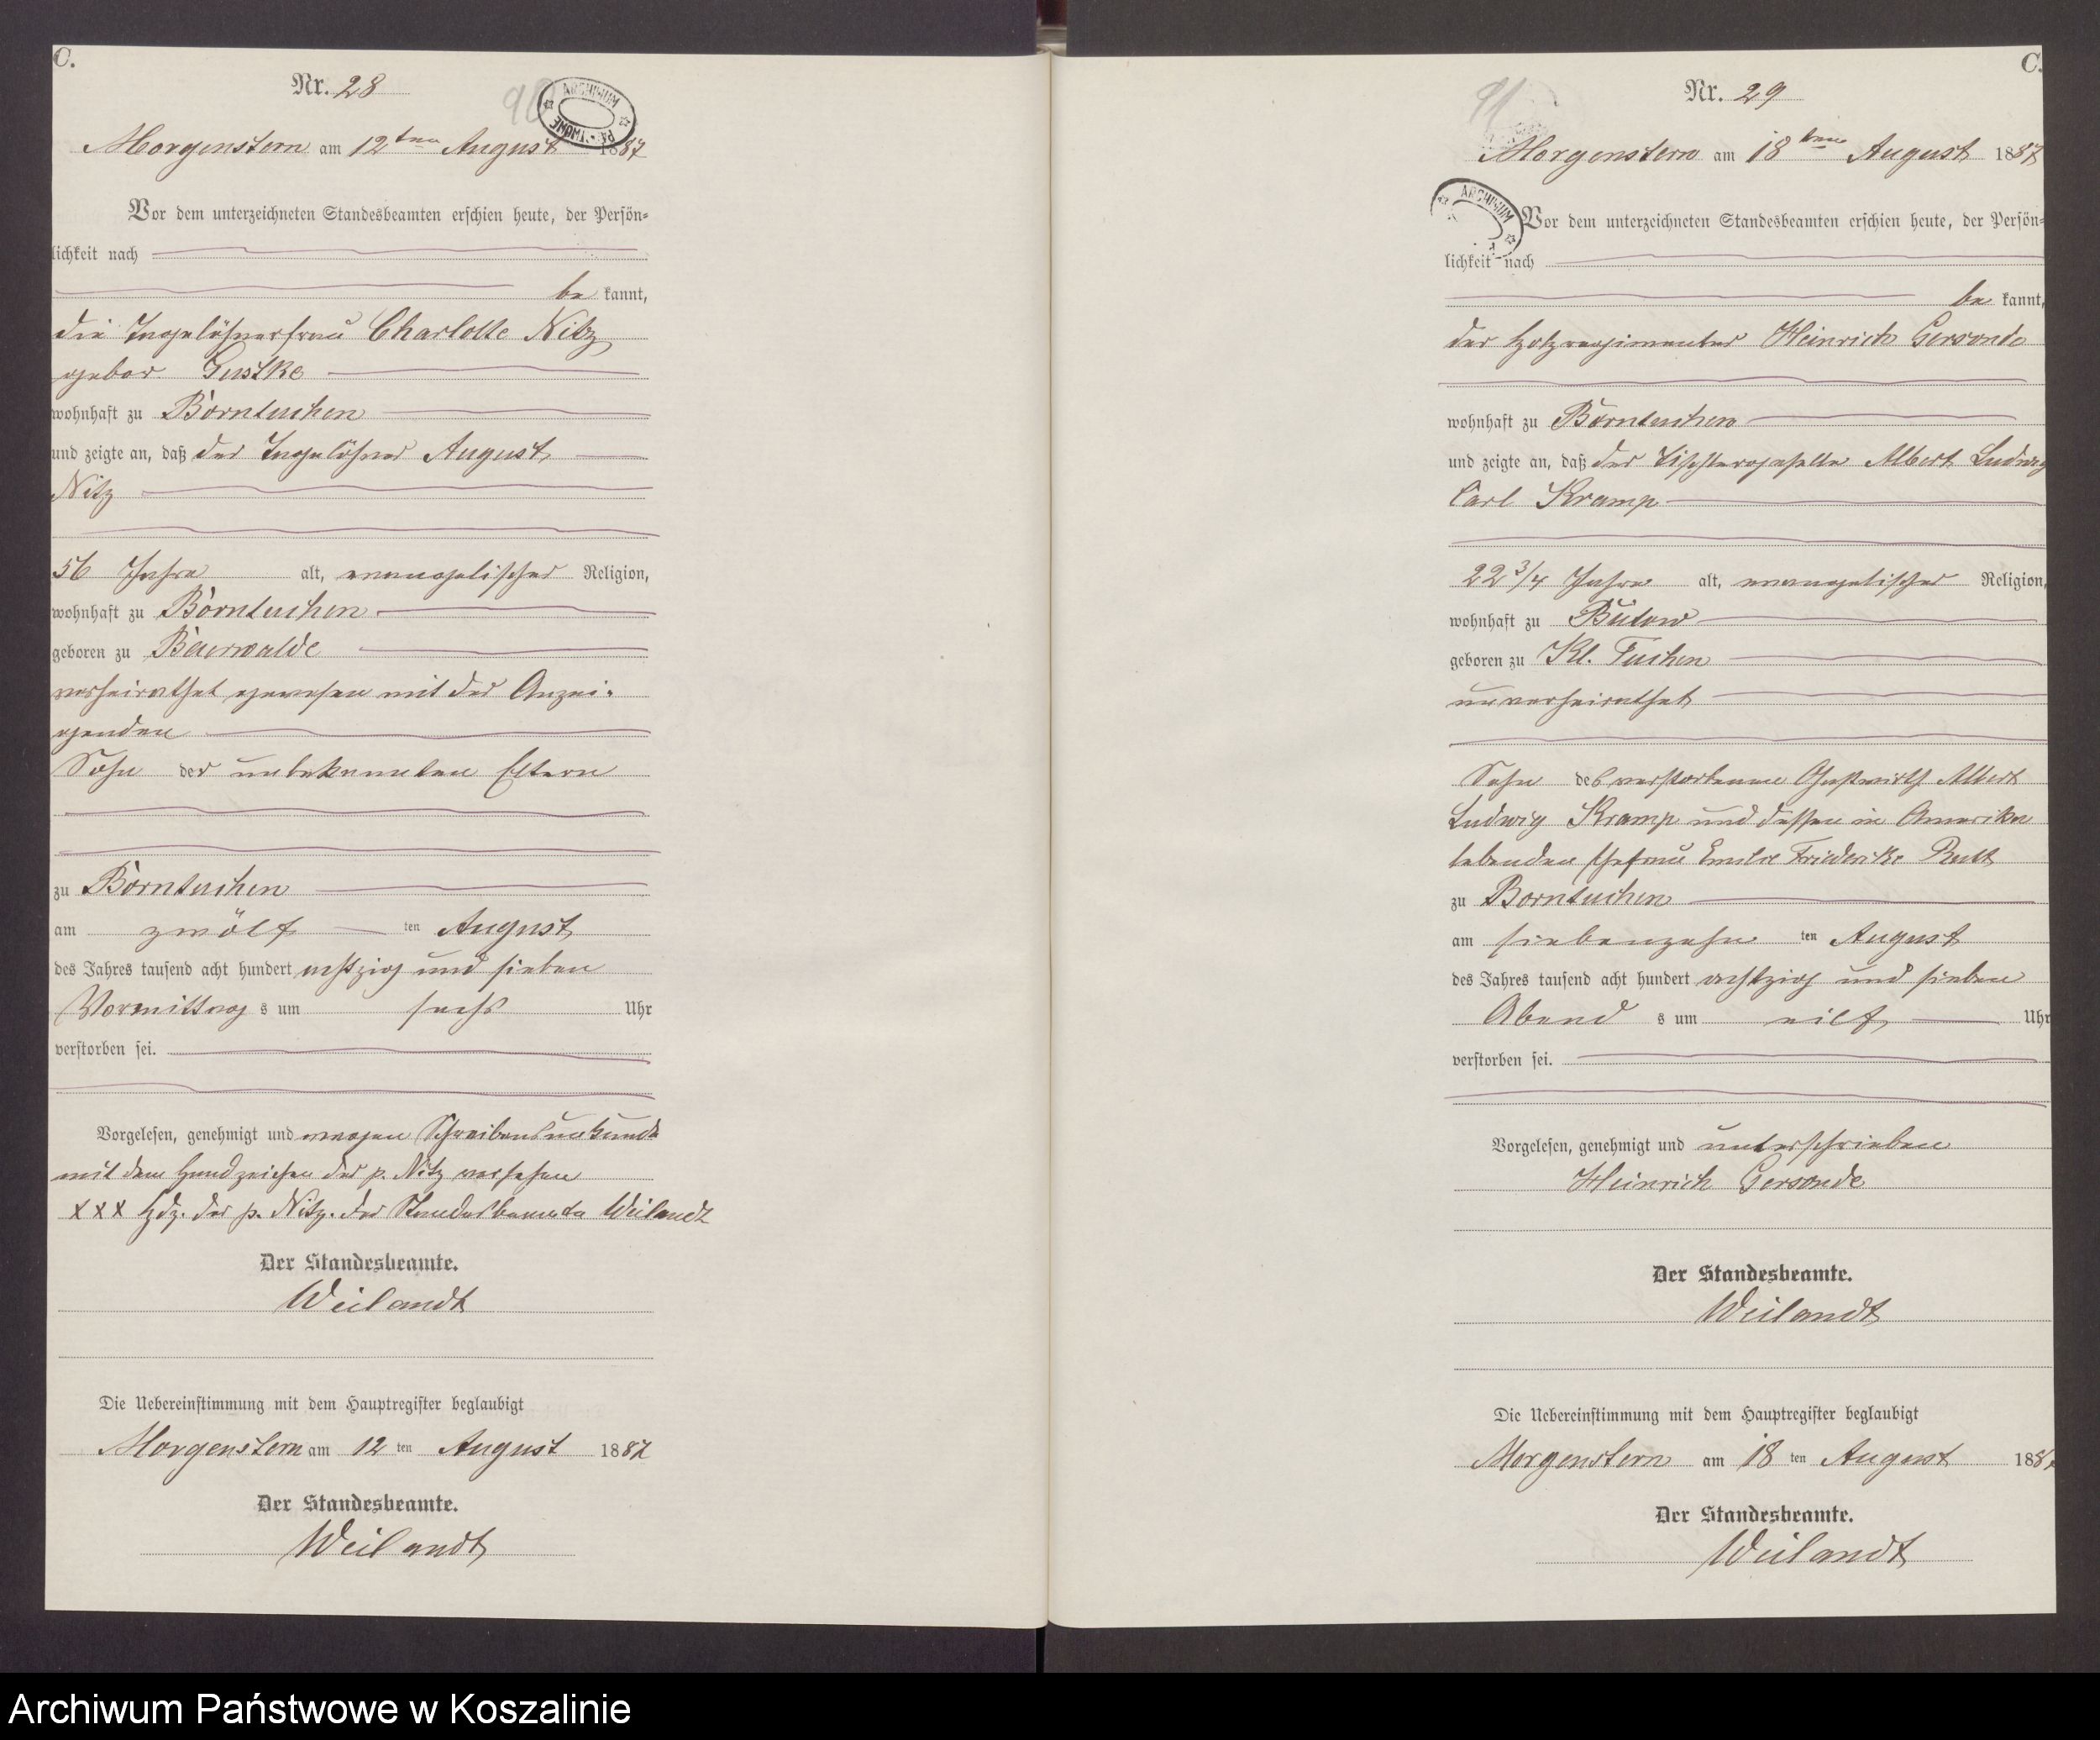 C.
Nr. 28
90
ARCHIWUM
Morgenstern am 12ten August 1887
Vor dem unterzeichneten Standesbeamten erschien heute, der Persön-
lichkeit nach
be kannt,
die Tagelöhnerfrau Charlotte Nitz
gebor. Gustke
wohnhaft zu Borntuchen
und zeigte an, daß der Tagelöhner August
Nitz
56 Jahre alt, evangelischer Religion,
wohnhaft zu Borntuchen
geboren zu Baerwalde
verheirathet gewesen mit der Anzei-
genden
Sohn der unbekannten Eltern
zu Borntuchen
am zwölf ten August
des Jahres tausend acht hundert achtzig und sieben
Vormittag s um sechs Uhr
verstorben sei.
Vorgelesen, genehmigt und wegen Schreibensunkunde
mit dem Handzeichen der p. Nitz versehen
XXX Hdz. der p. Nitz. Der Standesbeamte Weilandt
Der Standesbeamte.
Weilandt
Die Uebereinstimmung mit dem Hauptregister beglaubigt
Morgenstern am 12 ten August 1887
Der Standesbeamte.
Weilandt
C.
Nr. 29
91
Morgenstern am 18ten August 1887
ARCHIWUM
Vor dem unterzeichneten Standesbeamten erschien heute, der Persön-
lichkeit nach
be kannt,
der Holzregimenter Heinrich Gersonde
wohnhaft zu Borntuchen
und zeigte an, daß der Tischlergeselle Albert Ludwig
Carl Kramp
22 3/4 Jahre alt, evangelischer Religion,
wohnhaft zu Bütow
geboren zu Kl. Tuchen
unverheirathet
Sohn des verstorbenen Gastwirth Albert
Ludwig Kramp und dessen in Amerika
lebenden Ehefrau Emilie Friederike
zu Borntuchen
am siebenzehn ten August
des Jahres tausend acht hundert achtzig und sieben
Abend s um eilf Uhr
verstorben sei.
Vorgelesen, genehmigt und unterschrieben
Heinrich Gersonde
Der Standesbeamte.
Weilandt
Die Uebereinstimmung mit dem Hauptregister beglaubigt
Morgenstern am 18 ten August 1887
Der Standesbeamte.
Weilandt
Archiwum Państwowe w Koszalinie